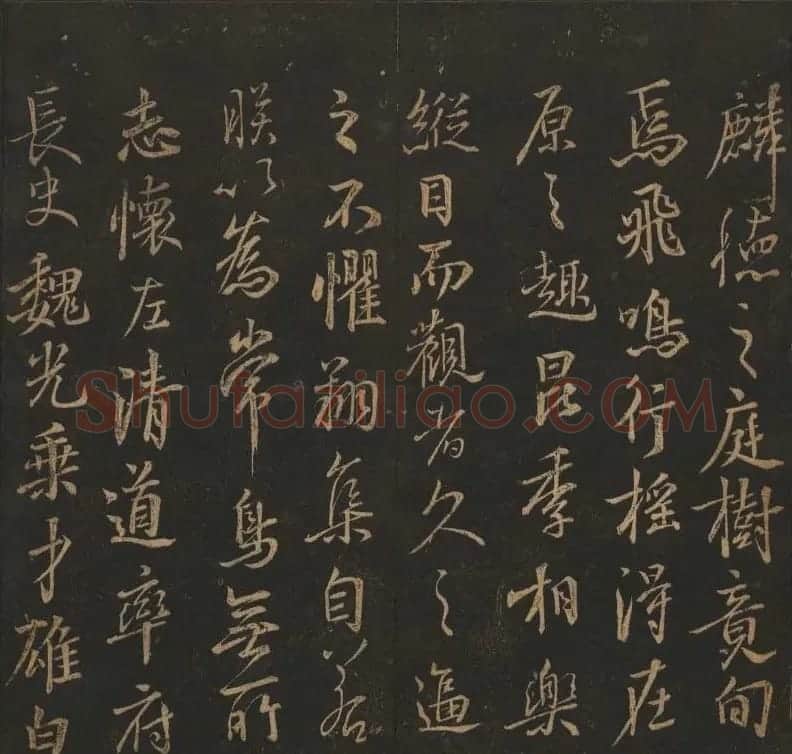 麟德之庭樹竟旬
焉飛鳴行摇淂在
原之趣昆季相樂
縱目而觀者久之逼
之不懼翔集自若
朕以為常鳥無所
志懷左清道率府
長史魏光乗才雄白
Shufaziliao.COM